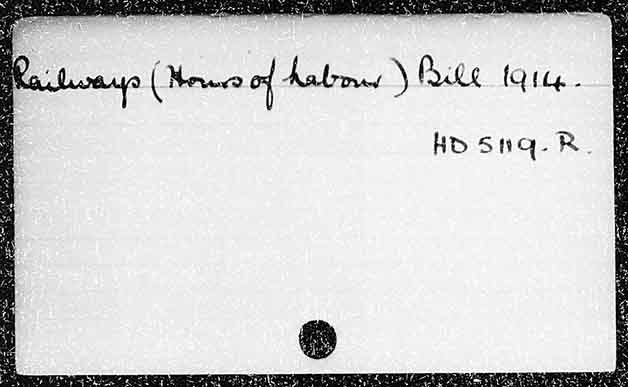 Railways (Hours of Labour) Bill 1914.
HD 5119. R.